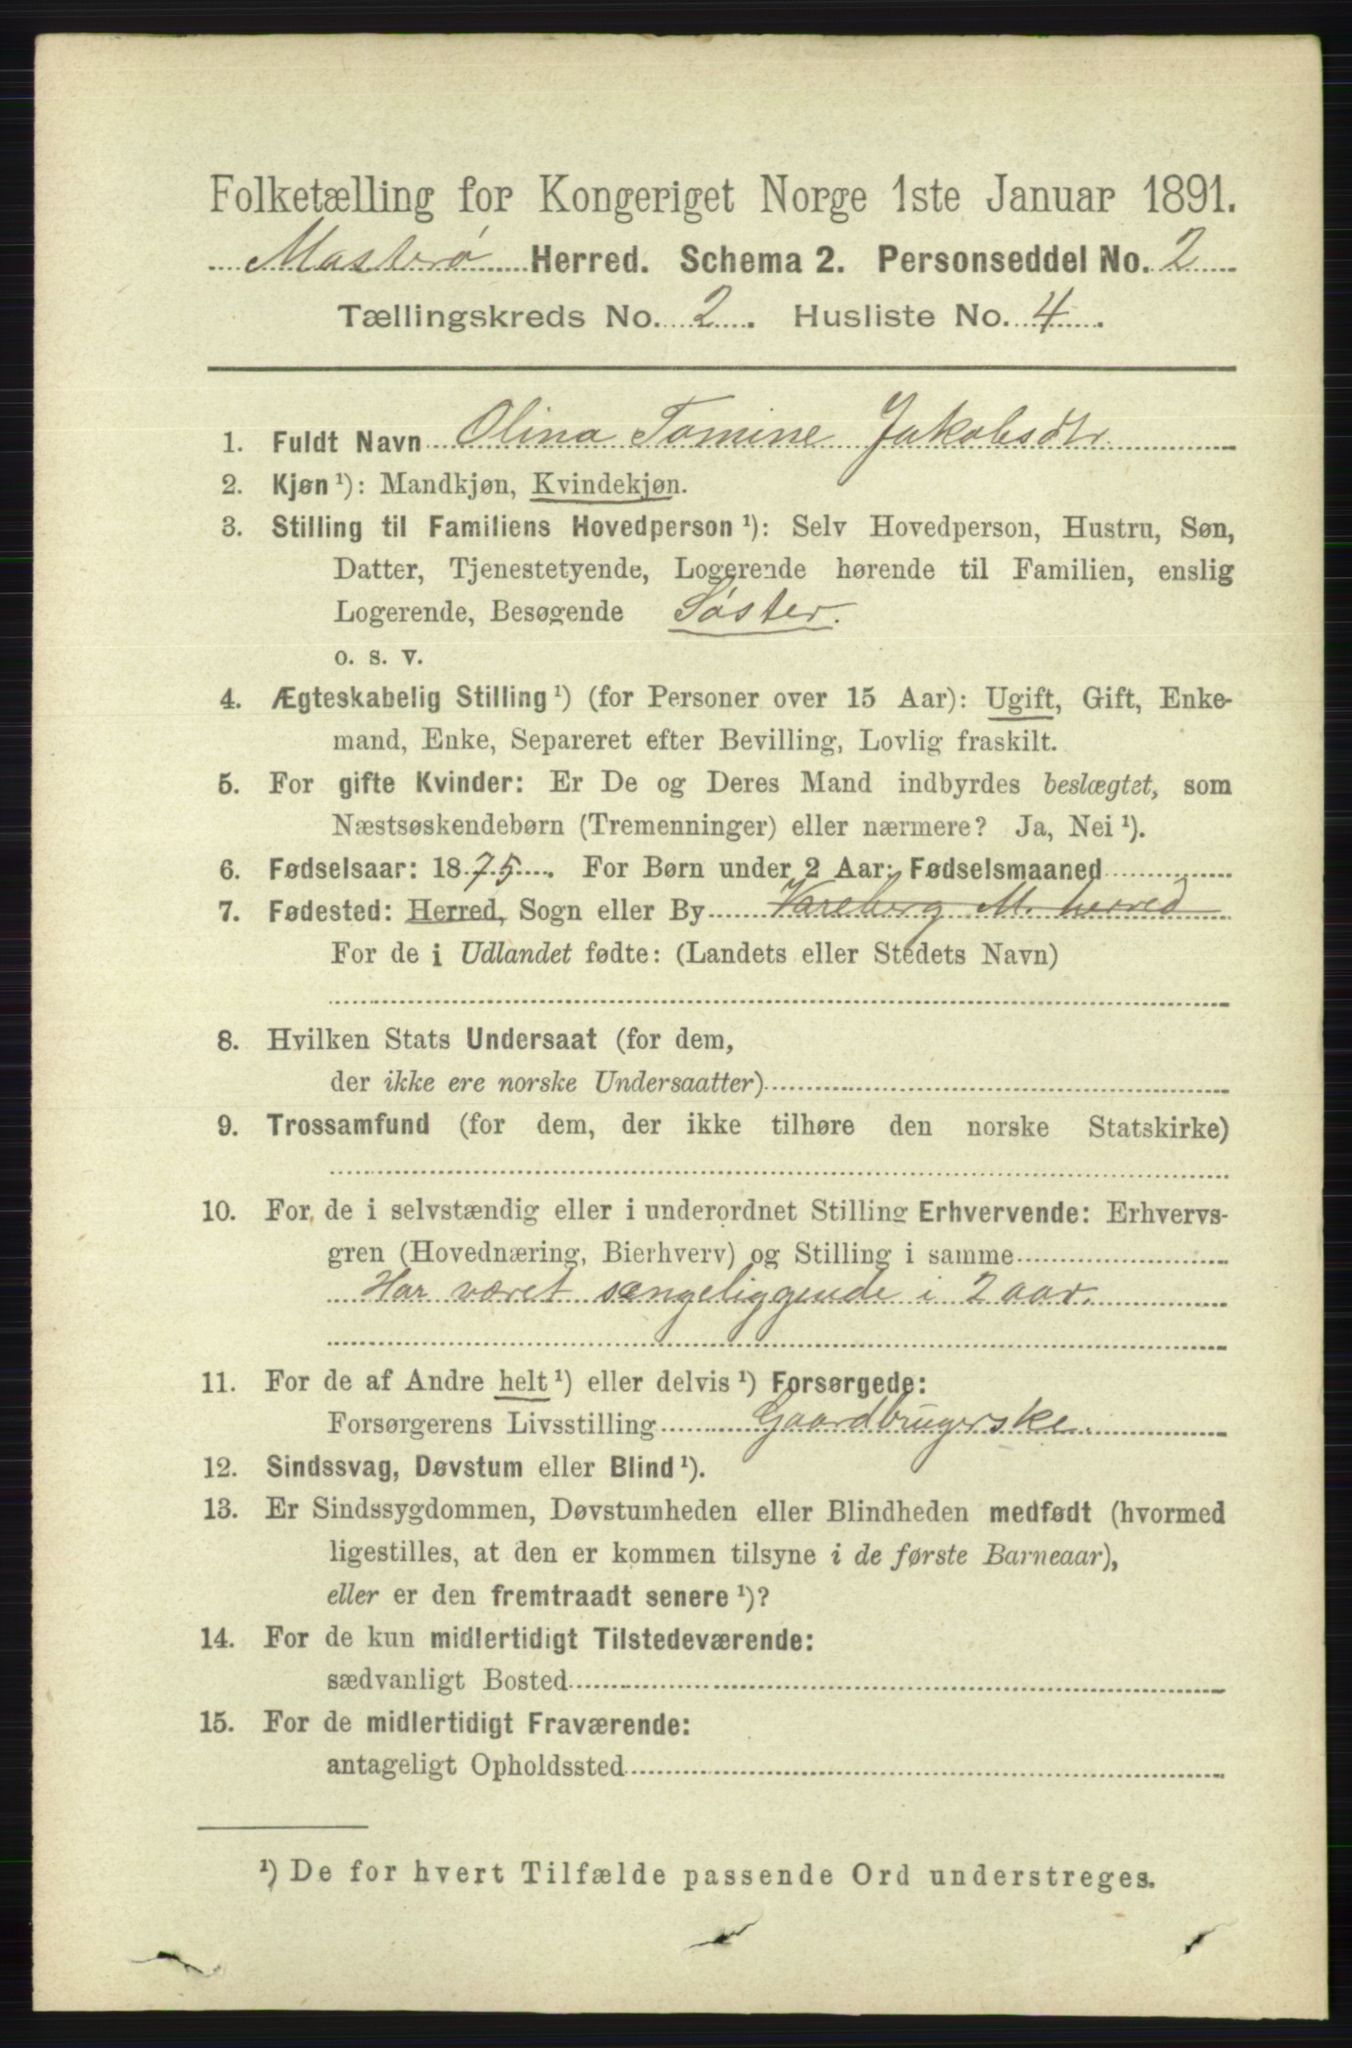 Folketælling for Kongeriget Norge 1ste Januar 1891.
Masterø Herred. Schema 2. Personseddel No. 2
Tællingskreds No. 2. Husliste No. 4.
1. Fuldt Navn Olina Tomine Jakobsdtr.
2. Kjøn ¹): Mandkjøn, Kvindekjøn.
3. Stilling til Familiens Hovedperson ¹): Selv Hovedperson, Hustru, Søn,
Datter, Tjenestetyende, Logerende hørende til Familien, enslig
Logerende, Besøgende Søster.
o. s. v.
4. Ægteskabelig Stilling ¹) (for Personer over 15 Aar): Ugift, Gift, Enke-
mand, Enke, Separeret efter Bevilling, Lovlig fraskilt.
5. For gifte Kvinder: Er De og Deres Mand indbyrdes beslægtet, som
Næstsøskendebørn (Tremenninger) eller nærmere? Ja, Nei ¹).
6. Fødselsaar: 1875. For Børn under 2 Aar: Fødselsmaaned
7. Fødested: Herred, Sogn eller By Vareberg M. herred
For de i Udlandet fødte: (Landets eller Stedets Navn)
8. Hvilken Stats Undersaat (for dem,
der ikke ere norske Undersaatter)
9. Trossamfund (for dem, der ikke tilhøre den norske Statskirke)
10. For de i selvstændig eller i underordnet Stilling Erhvervende: Erhvervs-
gren (Hovednæring, Bierhverv) og Stilling i samme
Har været sængeliggende i 2 aar.
11. For de af Andre helt ¹) eller delvis ¹) Forsørgede:
Forsørgerens Livsstilling Gaardbrugerske.
12. Sindssvag, Døvstum eller Blind ¹).
13. Er Sindssygdommen, Døvstumheden eller Blindheden medfødt (hvormed
ligestilles, at den er kommen tilsyne i de første Barneaar),
eller er den fremtraadt senere ¹)?
14. For de kun midlertidigt Tilstedeværende:
sædvanligt Bosted
15. For de midlertidigt Fraværende:
antageligt Opholdssted
¹) De for hvert Tilfælde passende Ord understreges.